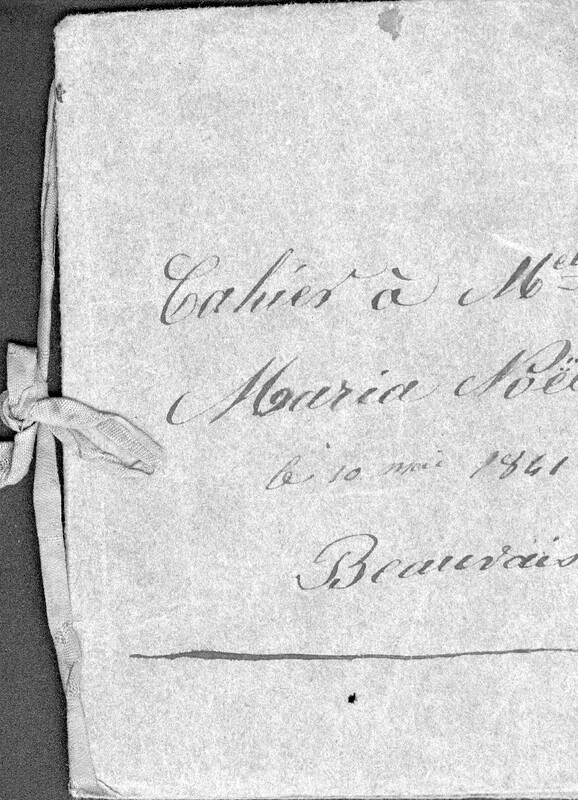 Cahier à Mel
Maria Noël
le 10 mai 1841
Beauvais